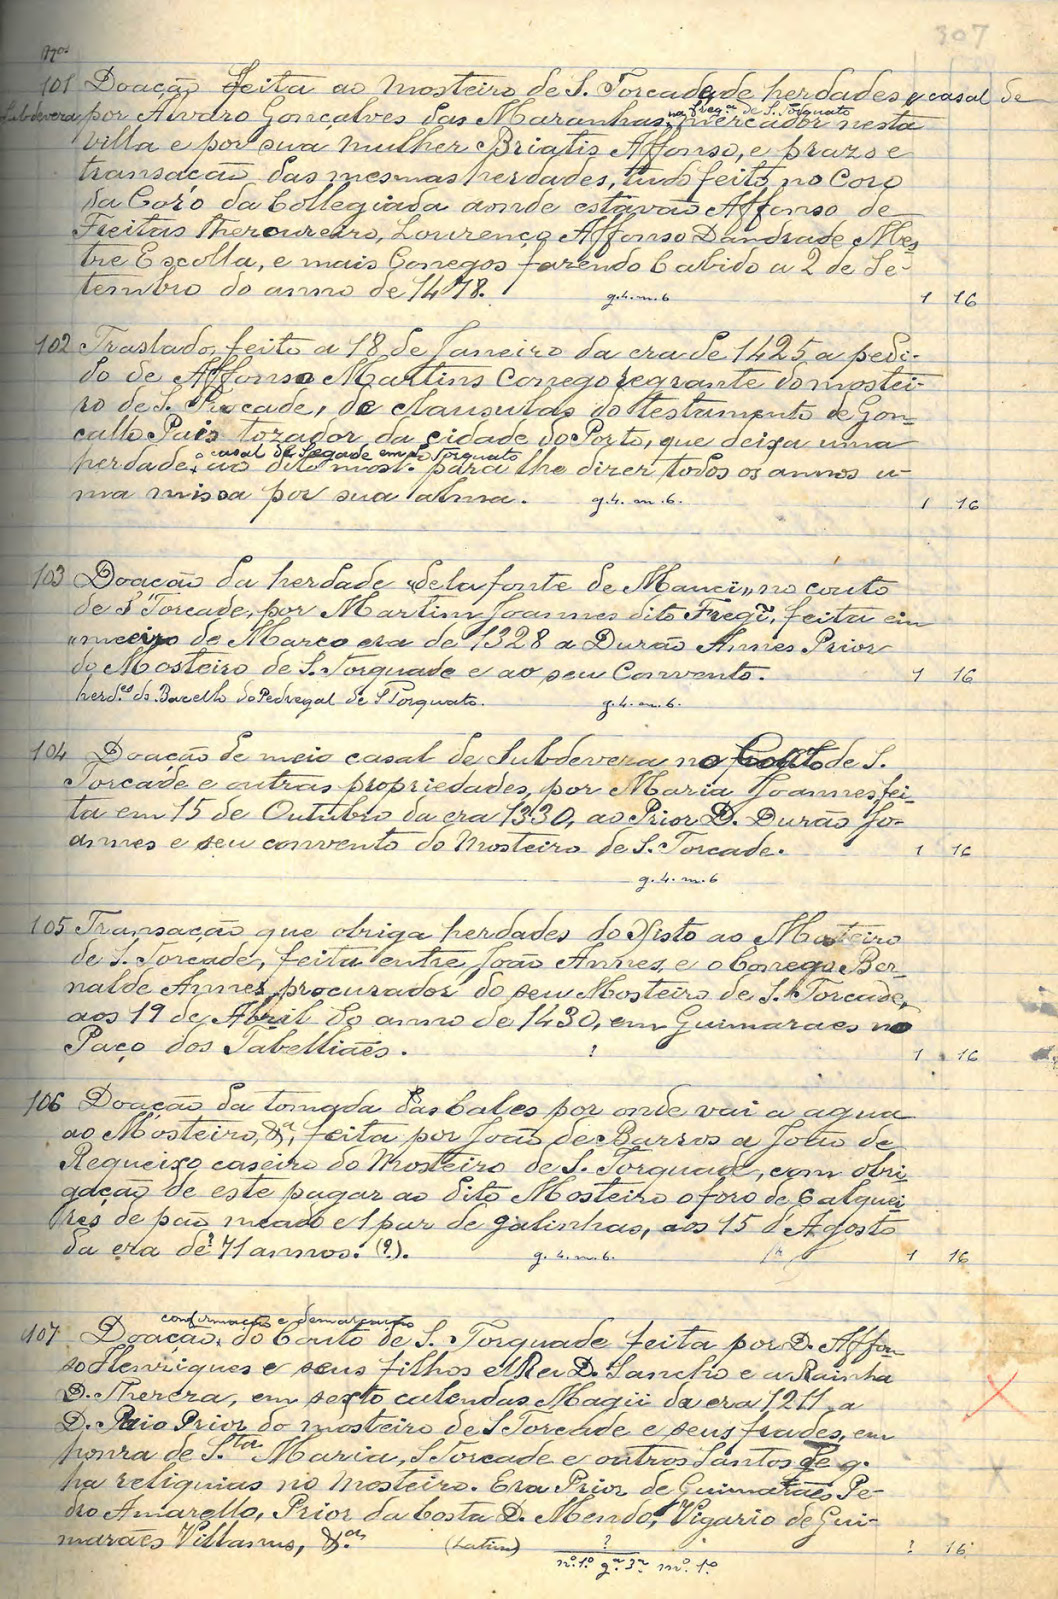 307
Nos
101 Doação feita ao Mosteiro de S. Torcade de herdades, e casal de
Subdevera, por Alvaro Gonçalves das Maranhas, na fregª de S. Torquato mercador nesta
villa e por sua mulher Briatis Affonso, e prazo e
transação das mesmas herdades, tudo feito no Coro
da Coro da Collegiada aonde estavão Affonso de
Freitas thezoureiro, Lourenço Affonso Dandrade Mes-
tre Escolla, e mais Conegos fazendo Cabido a 2 de Se-
tembro do anno de 1478. g. 4. m. 6 1 16
102 Traslado, feito a 18 de Janeiro da era de 1425, a pedi-
do de Affonso Martins Conego regrante do mostei-
ro de S. Trocade, de clausulas do testamento de Gon-
callo Pais tozador, da cidade do Porto, que deixa uma
o casal de Segade em S. Torquato
herdade, ao dito most.º para lhe dizer todos os annos u-
ma missa por sua alma. g. 4. m. 6. 1 16
103 Doação da herdade "dela fonte de Manci" no couto
de S. Torcade, por Martim Joannes dito Fregĩ, feita em
"meeiro de Março era de 1328 a Durão Annes Prior
do Mosteiro de S. Torquade e ao seu Convento. 1 16
herd.es do Bacello do Pedregal de S Torquato. g. 4. m. 6.
104 Doação de meio casal de Subdevera no Couto de S.
Torcade e outras propriedades, por Maria Joannes, fei-
ta em 15 de Outubro da era 1330, ao Prior D. Durão Jo-
annes e seu convento do Mosteiro de S. Torcade. 1 16
g. 4. m. 6
105 Transação que obriga herdades do Xisto ao Mosteiro
de S. Torcade, feita entre João Annes, e o Conego Ber-
nalde Annes, procurador do seu Mosteiro de S. Torcade,
aos 19 de Abril do anno de 1430, em Guimaraes no
Paço dos Tabelliães. ? 1 16
106 Doação da tomada das Cales por onde vai a agua
ao Mosteiro, &ª, feita por João de Barros a João de
Requeixo caseiro do Mosteiro de S. Torquade, com obri-
gação de este pagar ao dito Mosteiro o foro de 6 alquei-
res de pão meado e 1 par de galinhas, aos 15 d'Agosto
da era de ? 71 annos. (?). g. 4. m. 6. 1 16
confirmação e demarcação
107 Doação, do Couto de S. Torquade feita por D. Affon-
so Henriques e seus filhos elRei D. Sancho e a Rainha
D. Thereza, em sexto calendas Magii da era 1211, a
D. Paio Prior do mosteiro de S Torcade e seus frades, em
honra de S.tar Maria, S Torcade e outros Santos de q.
ha reliquias no mosteiro. Era Prior de Guimarães Pe-
dro Amarello, Prior da Costa D. Mendo, Vigario de Gui-
marães Villanus, &.as (Latim) ? ? 16
nº. 1º gª. 3ª mº. 1º